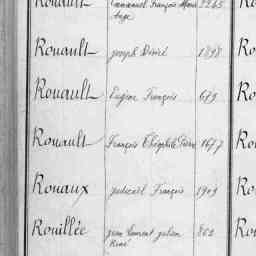 Rouault Emmanuel François Marie 2245
Ange
Rouault Joseph Désiré 1898
Rouault Eugène François 679
Rouault François Théophile Pierre 1677
Rouaux judicaël François 1909
Rouillée jean Laurent julien 802
René